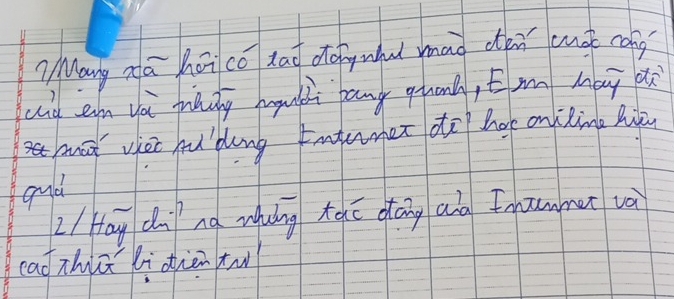 1/ Mạng xã hội có tác động như mào đến cuộc sống
của em và những người xung quanh, Em hãy đề
xuất việc sử dụng Internet để học oniline hiệu
quả
2/ Hãy chỉ ra những tác động của Internet và
các thiết bị điện tử